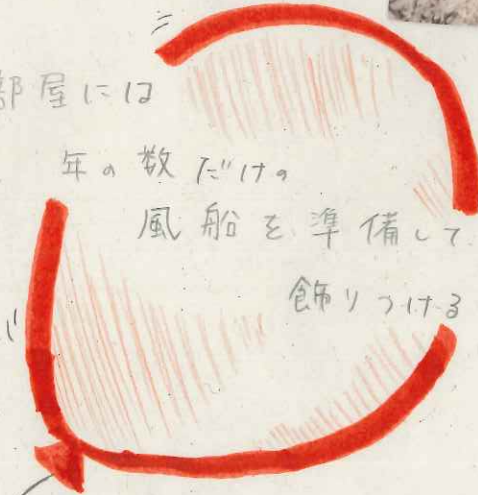 部屋には
年の数だけの
風船を準備して
飾りつける